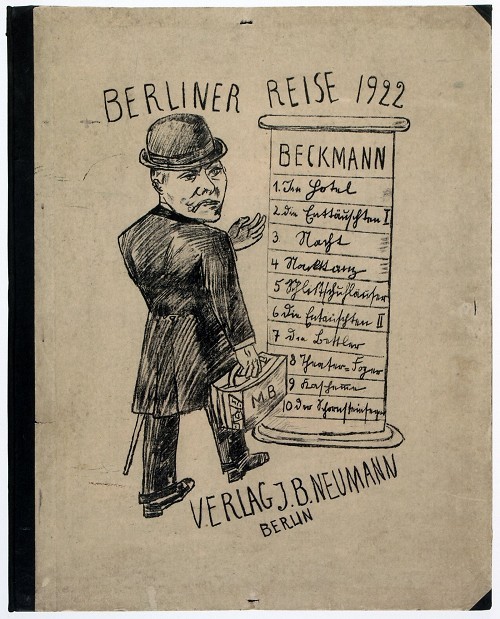 BERLINER REISE 1922
BECKMANN
1. Im Hotel
2 die Enttäuschten I
3 Nacht
4 Nackttanz
5 Schlittschuhläufer
6 die Enttäuschten II
7 die Bettler
8 Theater=Foyer
9 Kaschemme
10 der Schornsteinfeger
M.B
VERLAG J.B. NEUMANN
BERLIN